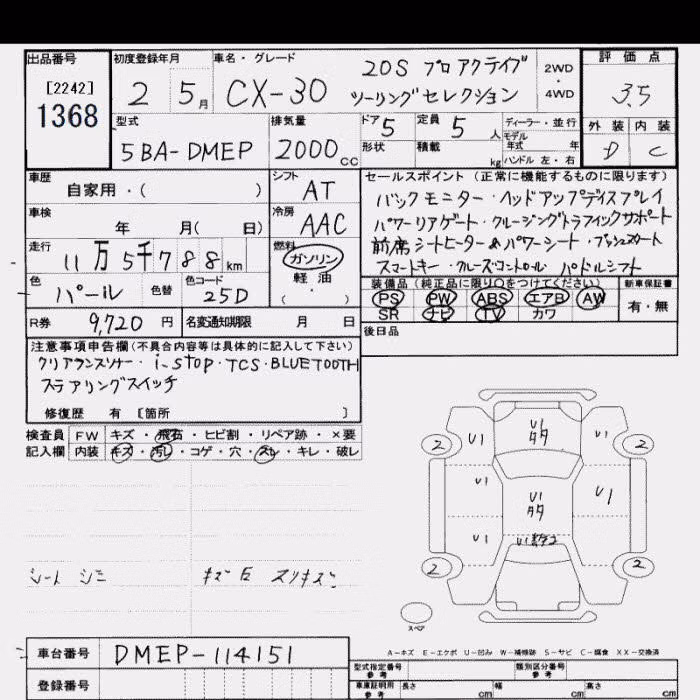 出品番号
[2242]
1368
初度登録年月
2 5月
車名・グレード
CX-30
20S プロアクティブ
ツーリングセレクション
2WD
・
4WD
評価点
3.5
外装 内装
D C
型式
5BA-DMEP
排気量
2000cc
ドア 5
形状
定員 5人
積載 kg
ディーラー・並行
モデル年式 年
ハンドル 左・右
車歴
自家用・( )
シフト
AT
車検
年 月( 日)
冷房
AAC
走行
11万5千788km
燃料
ガソリン
軽油
( ・ )
色
パール
色替
色コード
25D
R券 9,720円
名変通知期限 月 日
セールスポイント (正常に機能するものに限ります)
バックモニター・ヘッドアップディスプレイ
パワーリアゲート・クルージングトラフィックサポート
前席シートヒーター&パワーシート・プッシュスタート
スマートキー・クルーズコントロール パドルシフト
装備品(純正品に限り○をつけてください)
PS PW ABS エアB AW
SR ナビ TV カワ
新車保証書
有・無
後日品
注意事項申告欄(不具合内容等は具体的に記入して下さい)
クリアランスソナー・i-stop・TCS・BLUETOOTH
ステアリングスイッチ
修復歴 有 [箇所 ]
検査員記入欄
FW キズ・飛石・ヒビ割・リペア跡・×要
内装 キズ・汚レ・コゲ・穴・スレ・キレ・破レ
シート シミ
U1
タタ
U1
U1
2
2
U1
U1
タタ
U1
U1
2
2
スペア
A-キズ E-エクボ U-凹み W-補修跡 S-サビ C-腐食 XX-交換済
車台番号
DMEP-114151
登録番号
型式指定番号
参考
類別区分番号
参考
車庫証明用
参考
長さ cm
幅 cm
高さ cm